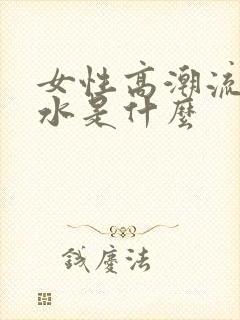 女性高潮流
水是什麼
钱慶法